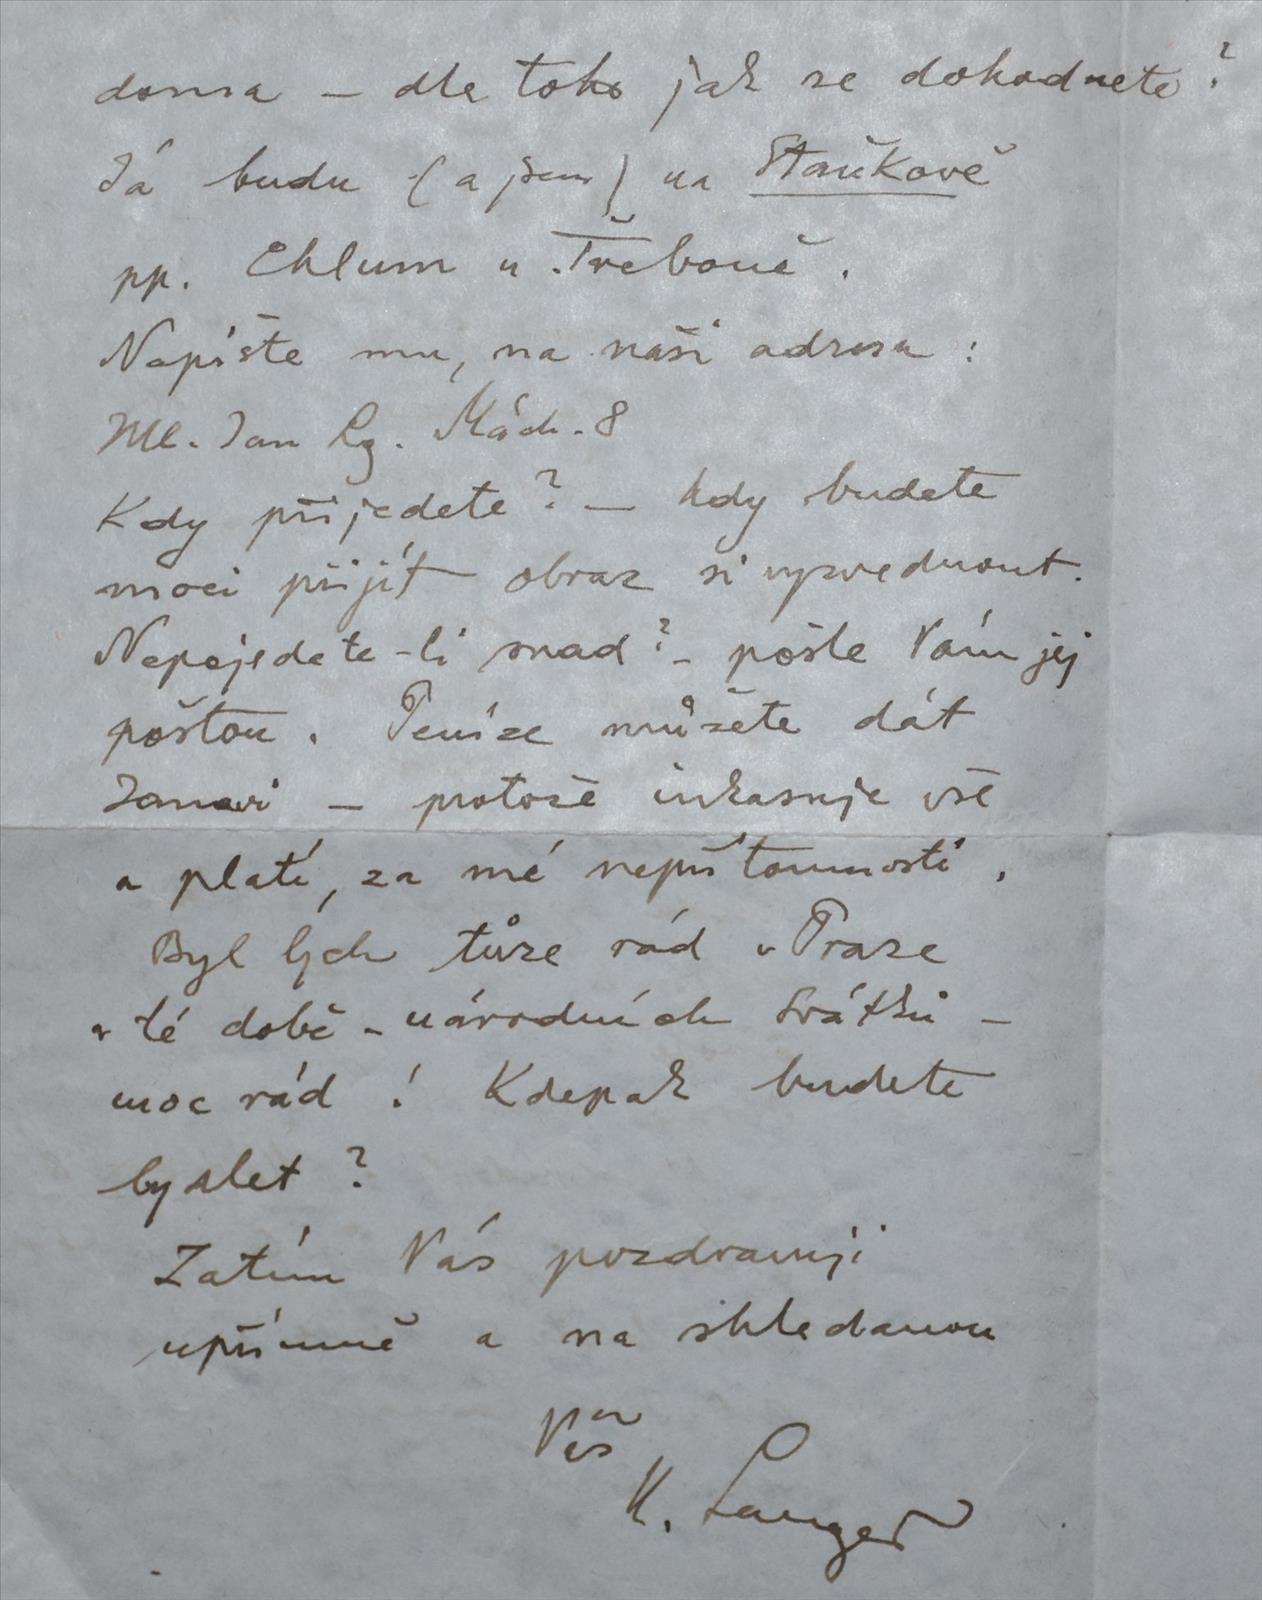 doma – dle toho jak se dohodnete?
Já budu (a jsem) na Staňkově
pp. Chlum u Třeboně.
Napište mu, na naši adresu:
Ml. Jan Lg. Mách. 8
Kdy přijedete? – kdy budete
moci přijít obraz si vyzvednout.
Nepojedete-li snad? – pošle Vám jej
poštou. Peníze můžete dát
Janovi – protože inkasuje vše
a platí, za mé nepřítomnosti.
Byl bych tůze rád v Praze
v té době – národních svátků –
moc rád! Kdepak budete
bydlet?
Zatím Vás pozdravuji
upřímně a na shledanou
Váš
K. Langer